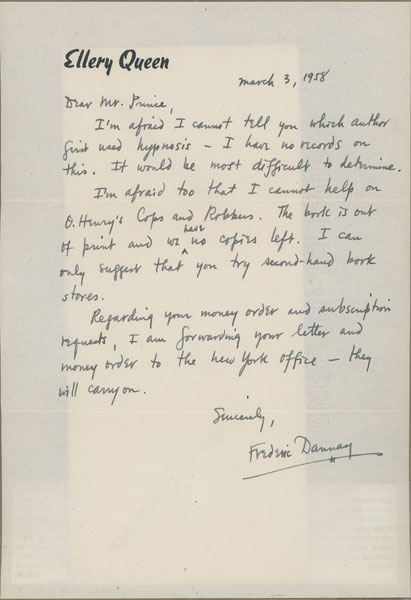 Ellery Queen
March 3, 1958
Dear Mr. Prince,
I'm afraid I cannot tell you which author
first used hypnosis – I have no records on
this. It would be most difficult to determine.
I'm afraid too that I cannot help on
O. Henry's Cops and Robbers. The book is out
of print and we have no copies left. I can
only suggest that you try second-hand book
stores.
Regarding your money order and subscription
requests, I am forwarding your letter and
money order to the New York office – they
will carry on.
Sincerely,
Frederic Dannay